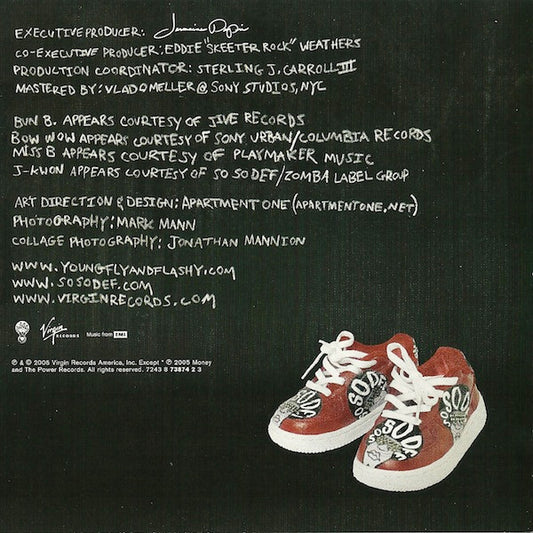 EXECUTIVE PRODUCER: Jermaine Dupri
CO-EXECUTIVE PRODUCER: EDDIE "SKEETER ROCK" WEATHERS
PRODUCTION COORDINATOR: STERLING J. CARROLL III
MASTERED BY: VLADO MELLER @ SONY STUDIOS, NYC
BUN B. APPEARS COURTESY OF JIVE RECORDS
BOW WOW APPEARS COURTESY OF SONY URBAN/COLUMBIA RECORDS
MISS B APPEARS COURTESY OF PLAYMAKER MUSIC
J-KWON APPEARS COURTESY OF SO SO DEF/ZOMBA LABEL GROUP
ART DIRECTION & DESIGN: APARTMENT ONE (APARTMENTONE.NET)
PHOTOGRAPHY: MARK MANN
COLLAGE PHOTOGRAPHY: JONATHAN MANNION
WWW.YOUNGFLYANDFLASHY.COM
WWW.SOSODEF.COM
WWW.VIRGINRECORDS.COM
Virgin RECORDS Music from EMI
℗ & © 2005 Virgin Records America, Inc. Except * ℗ 2005 Money
and The Power Records. All rights reserved. 7243 8 73874 2 3
SO SO DEF
SO SO DEF